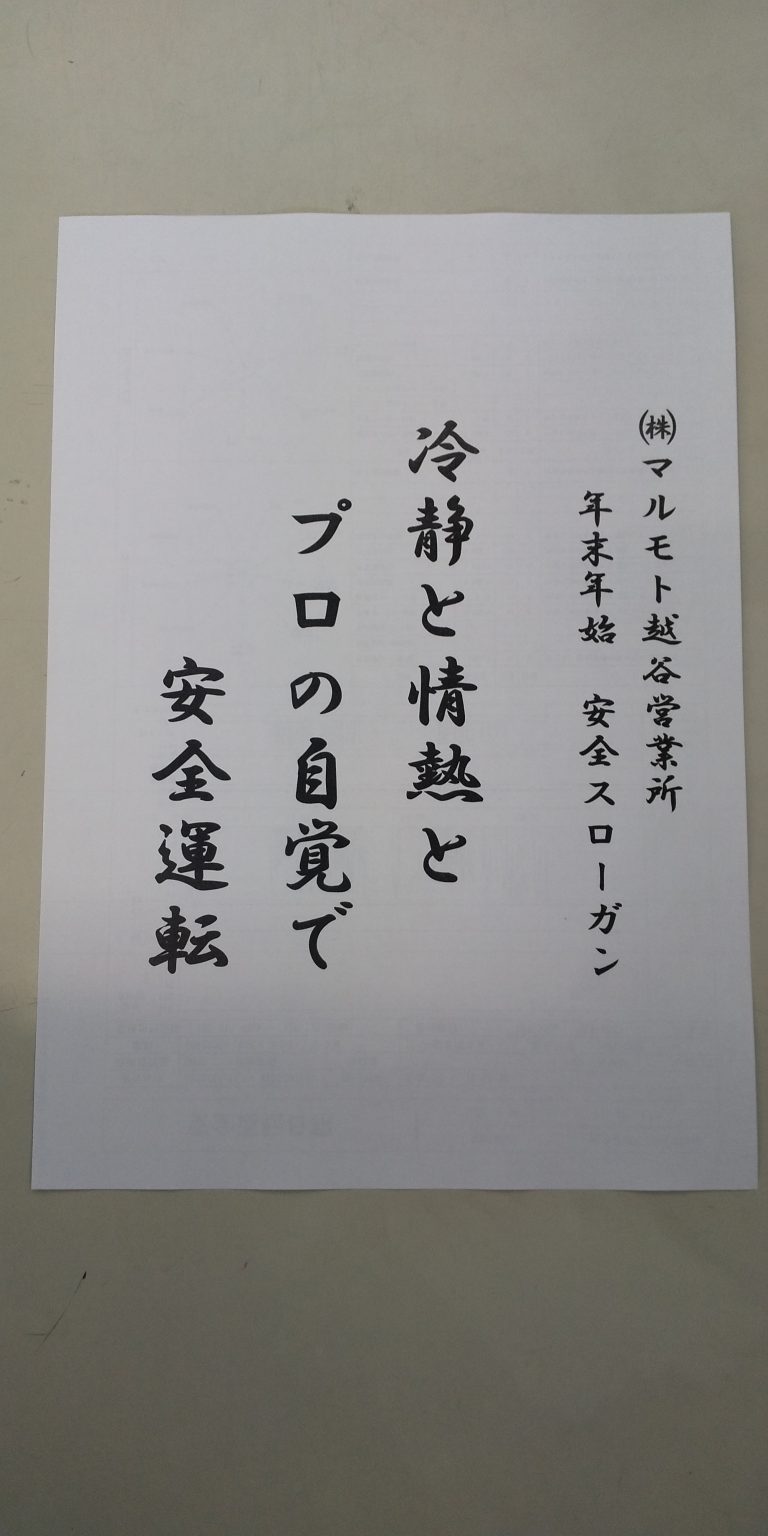 ㈱マルモト越谷営業所
年末年始　安全スローガン
冷静と情熱と
プロの自覚で
安全運転